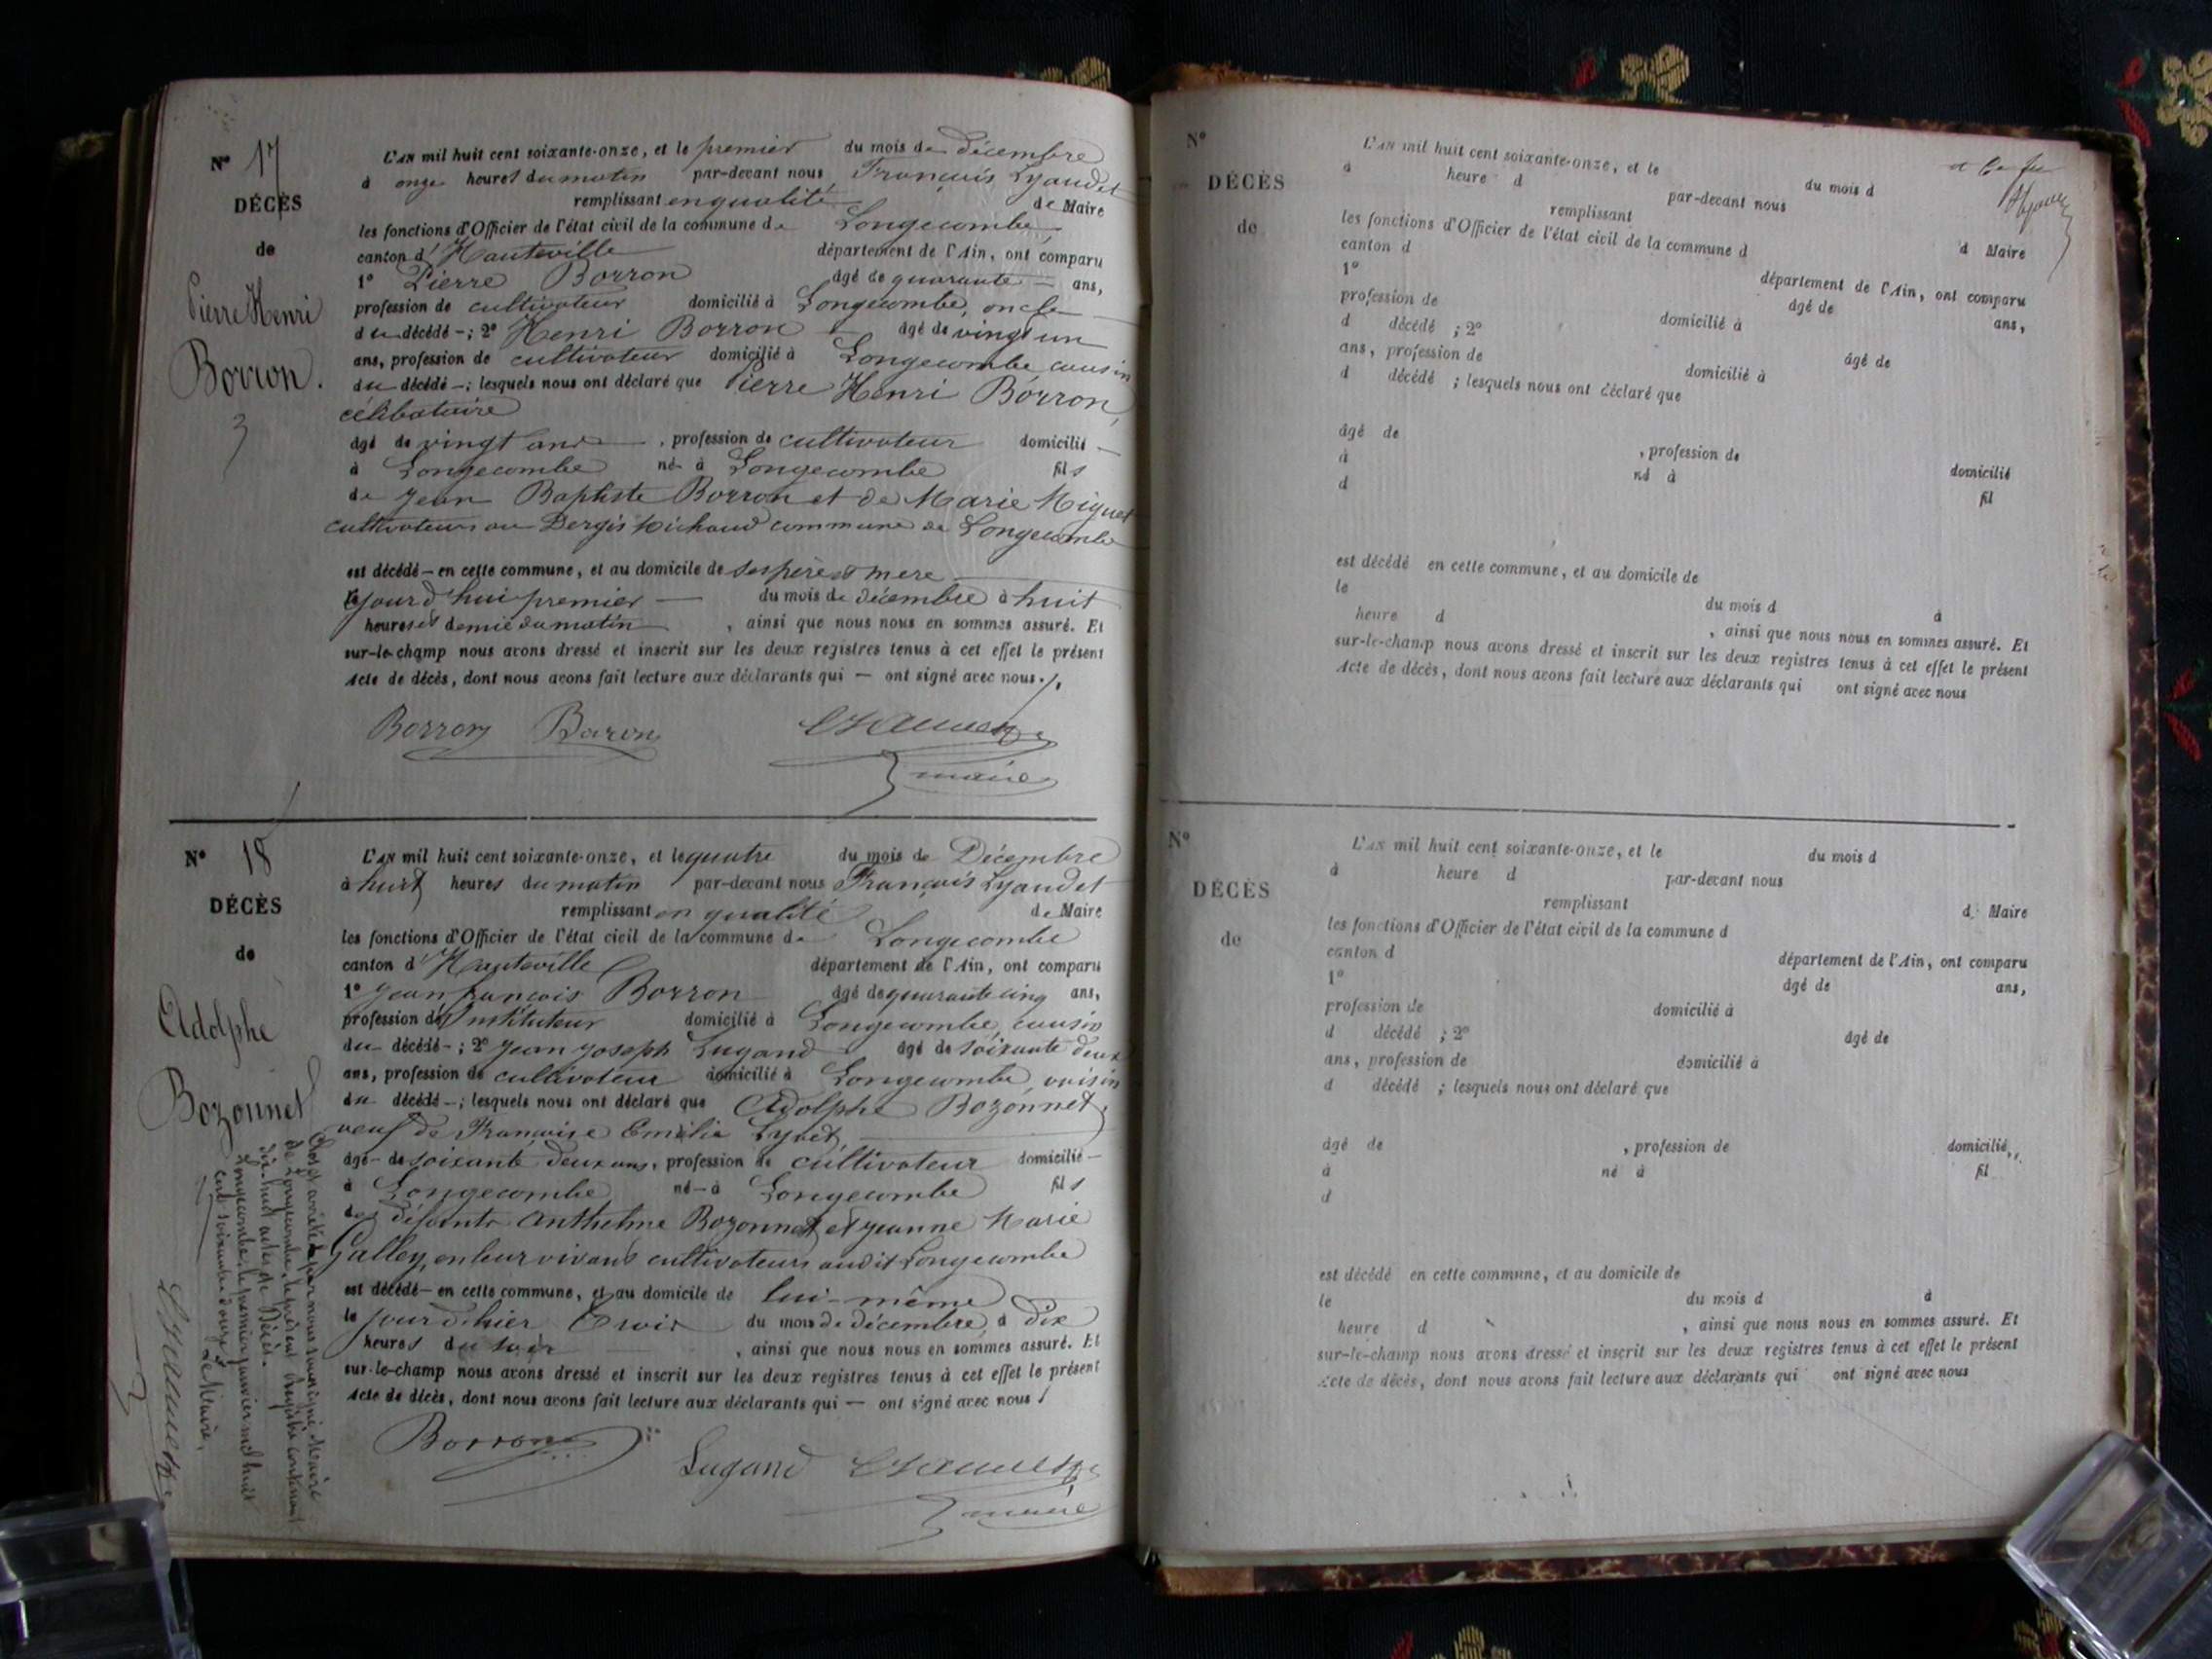 N° 17
DÉCÈS
de
Pierre Henri
Borron.
3
L'AN mil huit cent soixante-onze, et le premier du mois de Décembre
à onze heures du matin par-devant nous François Lyaudet
remplissant en qualité de Maire
les fonctions d'Officier de l'état civil de la commune de Longecombe
canton d'Hauteville département de l'Ain, ont comparu
1° Pierre Borron âgé de quarante ans,
profession de cultivateur domicilié à Longecombe, oncle
du décédé ; 2° Henri Borron âgé de vingt un
ans, profession de cultivateur domicilié à Longecombe cousin
du décédé ; lesquels nous ont déclaré que Pierre Henri Borron,
célibataire
âgé de vingt ans, profession de cultivateur domicilié
à Longecombe né à Longecombe fils
de Jean Baptiste Borron et de Marie Miguet
cultivateurs au Dergis Michaud commune de Longecombe
est décédé en cette commune, et au domicile de ses père et mère
le jourd'hui premier du mois de décembre à huit
heures et demie du matin, ainsi que nous nous en sommes assuré. Et
sur-le-champ nous avons dressé et inscrit sur les deux registres tenus à cet effet le présent
Acte de décès, dont nous avons fait lecture aux déclarants qui — ont signé avec nous.
Borron Baron
maire
N° 18
DÉCÈS
de
Adolphe
Bozonnet
L'AN mil huit cent soixante-onze, et le quatre du mois de Décembre
à huit heures du matin par-devant nous François Lyaudet
remplissant en qualité de Maire
les fonctions d'Officier de l'état civil de la commune de Longecombe
canton d'Hauteville département de l'Ain, ont comparu
1° Jean françois Borron âgé de quarante cinq ans,
profession d'Instituteur domicilié à Longecombe, cousin
du décédé ; 2° Jean Joseph Lugand âgé de soixante deux
ans, profession de cultivateur domicilié à Longecombe, voisin
du décédé ; lesquels nous ont déclaré que Adolphe Bozonnet,
veuf de Françoise Emilie
âgé de soixante deux ans, profession de cultivateur domicilié
à Longecombe né à Longecombe fils
des défunts Anthelme Bozonnet et Jeanne Marie
Galley, en leur vivant cultivateurs audit Longecombe
est décédé en cette commune, et au domicile de lui-même
le jour d'hier trois du mois de décembre, à dix
heures du soir, ainsi que nous nous en sommes assuré. Et
sur-le-champ nous avons dressé et inscrit sur les deux registres tenus à cet effet le présent
Acte de décès, dont nous avons fait lecture aux déclarants qui — ont signé avec nous
Borron
Lugand
maire
Clos et arrêté par nous soussigné, Maire
de Longecombe, le présent Registre contenant
dix huit actes de Décès.
Longecombe, le premier janvier mil huit
cent soixante douze.
Le Maire,
N°
DÉCÈS
de
L'AN mil huit cent soixante-onze, et le du mois d
à heure d par-devant nous
remplissant d Maire
les fonctions d'Officier de l'état civil de la commune d
canton d département de l'Ain, ont comparu
1° âgé de ans,
profession de domicilié à
d décédé ; 2° âgé de
ans, profession de domicilié à
d décédé ; lesquels nous ont déclaré que
âgé de , profession de domicilié
à né à fil
d
est décédé en cette commune, et au domicile de
le du mois d à
heure d , ainsi que nous nous en sommes assuré. Et
sur-le-champ nous avons dressé et inscrit sur les deux registres tenus à cet effet le présent
Acte de décès, dont nous avons fait lecture aux déclarants qui ont signé avec nous
N°
DÉCÈS
de
L'AN mil huit cent soixante-onze, et le du mois d
à heure d par-devant nous
remplissant d Maire
les fonctions d'Officier de l'état civil de la commune d
canton d département de l'Ain, ont comparu
1° âgé de ans,
profession de domicilié à
d décédé ; 2° âgé de
ans, profession de domicilié à
d décédé ; lesquels nous ont déclaré que
âgé de , profession de domicilié
à né à fil
d
est décédé en cette commune, et au domicile de
le du mois d à
heure d , ainsi que nous nous en sommes assuré. Et
sur-le-champ nous avons dressé et inscrit sur les deux registres tenus à cet effet le présent
Acte de décès, dont nous avons fait lecture aux déclarants qui ont signé avec nous